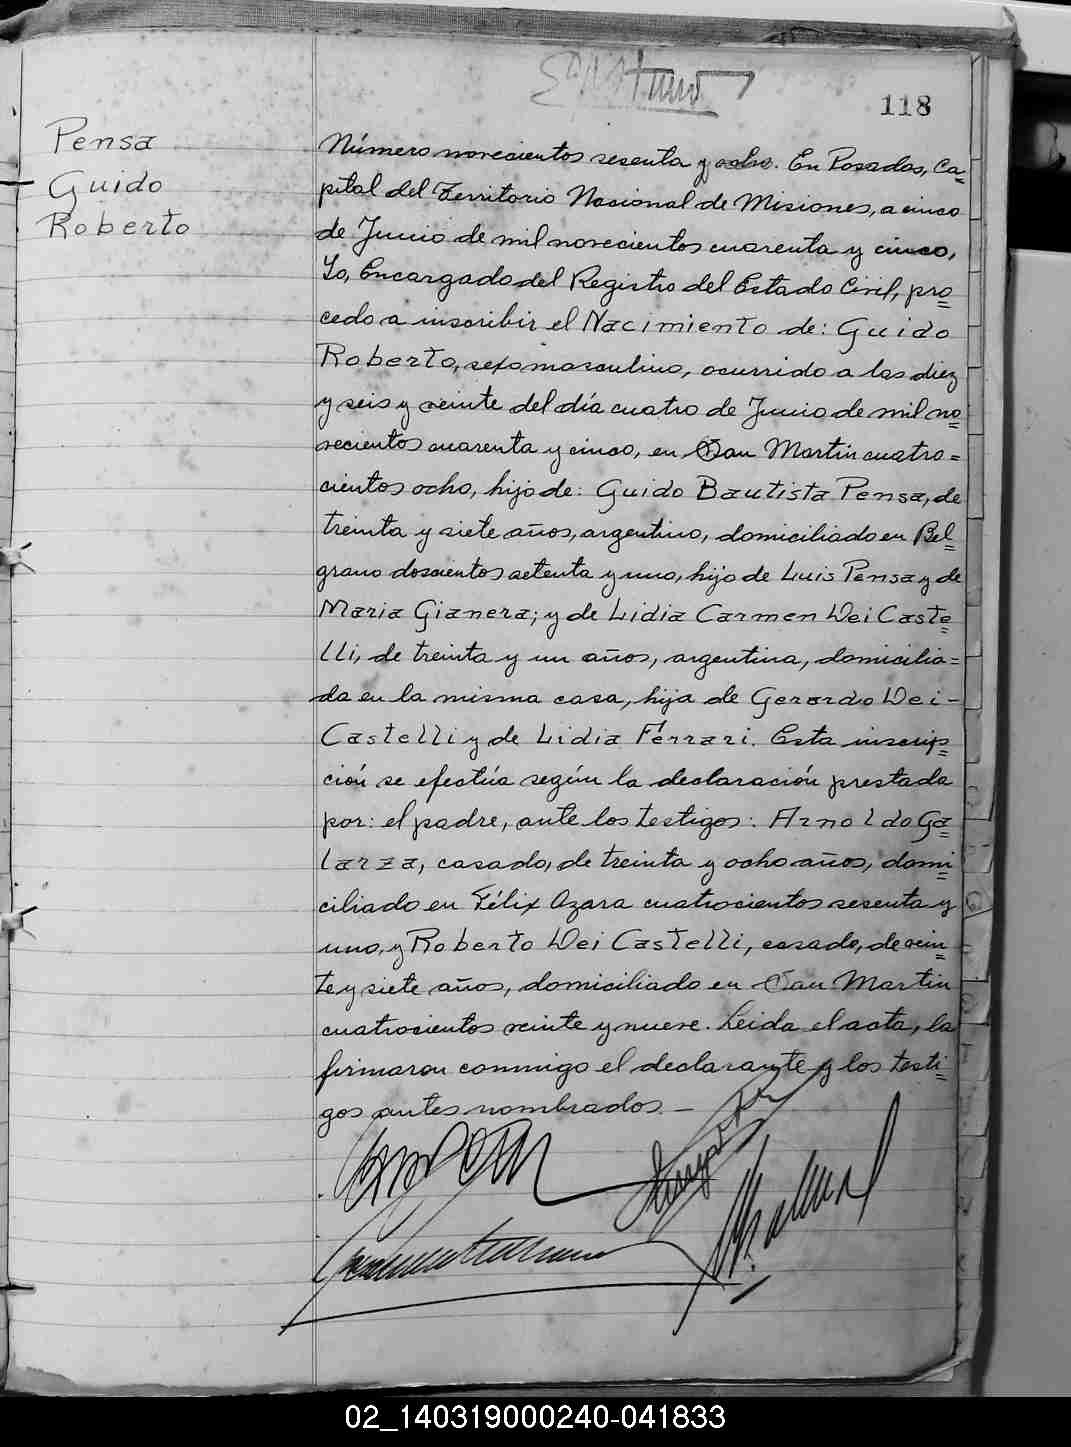 118
Pensa
Guido
Roberto
Número novecientos sesenta y ocho. En Posadas, Ca=
pital del Territorio Nacional de Misiones, a cinco
de Junio de mil novecientos cuarenta y cinco,
Yo, Encargado del Registro del Estado Civil, pro=
cedo a inscribir el Nacimiento de: Guido
Roberto, sexo masculino, ocurrido a las diez
y seis y veinte del día cuatro de Junio de mil no=
vecientos cuarenta y cinco, en San Martin cuatro=
cientos ocho, hijo de: Guido Bautista Pensa, de
treinta y siete años, argentino, domiciliado en Bel=
grano doscientos setenta y uno, hijo de Luis Pensa y de
Maria Gianera; y de Lidia Carmen Dei Caste=
lli, de treinta y un años, argentina, domicilia=
da en la misma casa, hija de Gerardo Dei-
Castelli y de Lidia Ferrari. Esta inscrip=
ción se efectúa según la declaración prestada
por: el padre, ante los testigos: Arnoldo Ga=
larza, casado, de treinta y ocho años, domi=
ciliado en Félix Azara cuatrocientos sesenta y
uno, y Roberto Dei Castelli, casado, de vein=
te y siete años, domiciliado en San Martin
cuatrocientos veinte y nueve. Leida el acta, la
firmaron conmigo el declarante y los testi=
gos antes nombrados.-
02_140319000240-041833